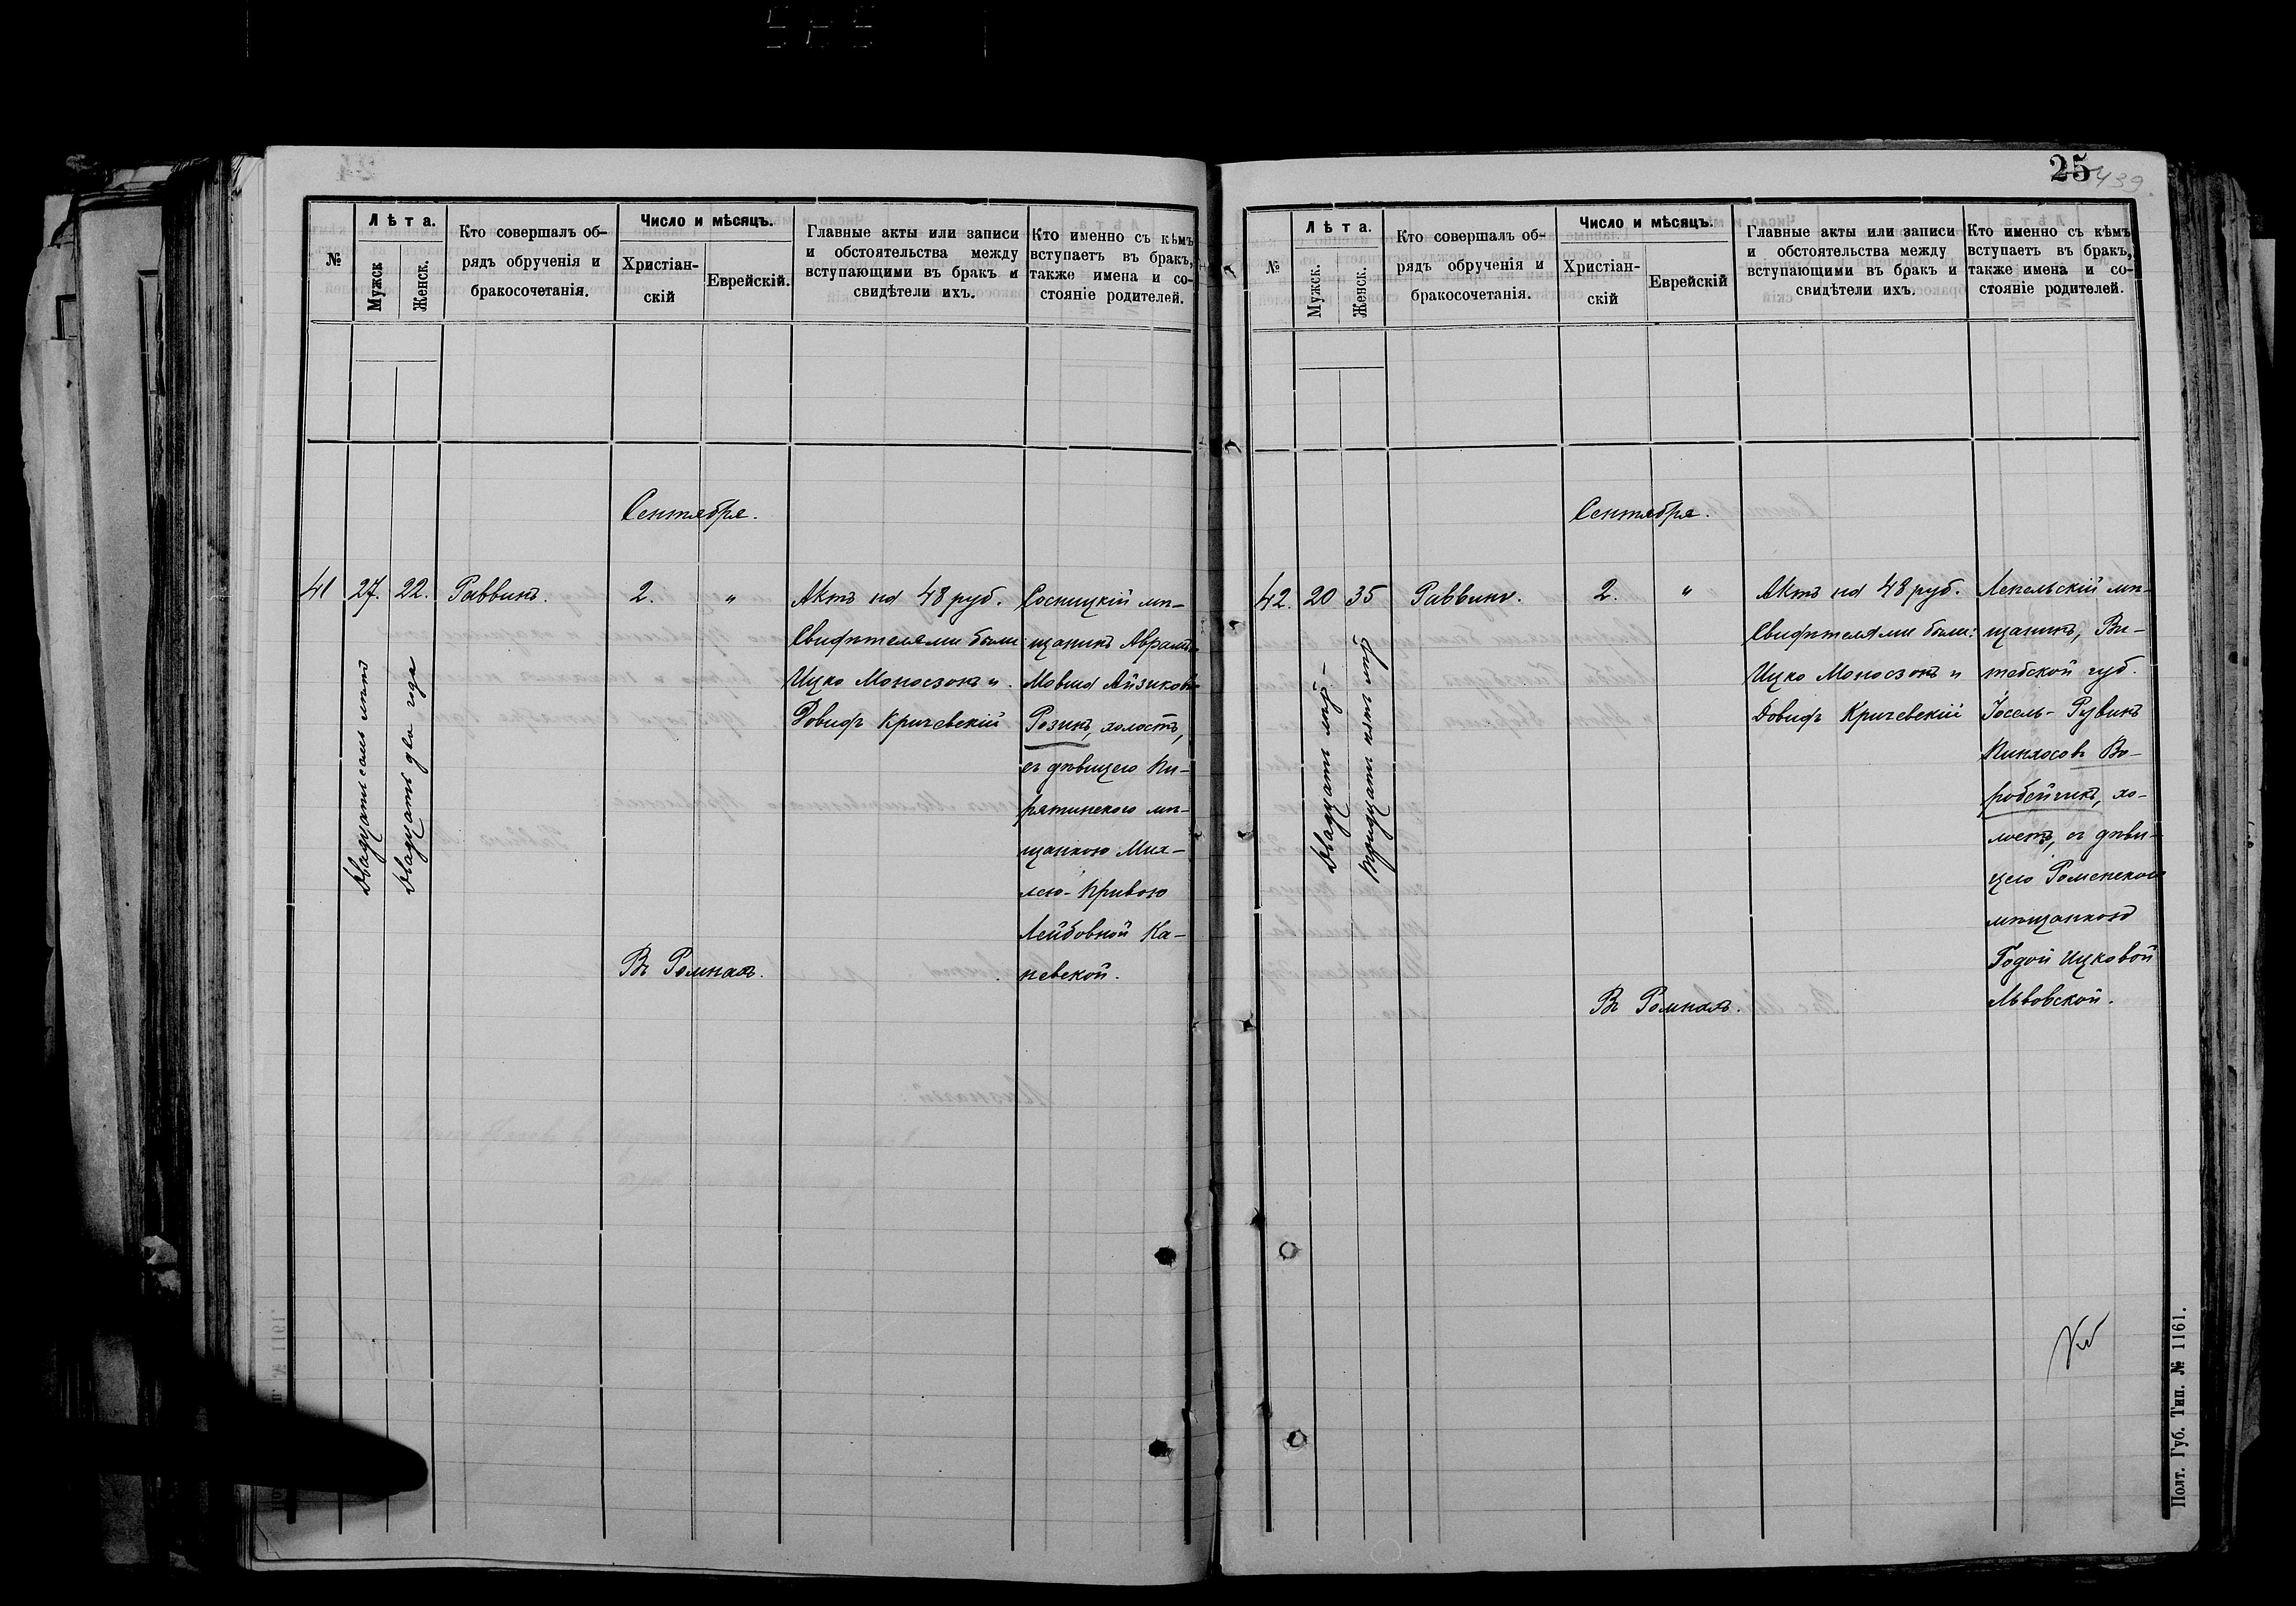 №
Лѣта.
Мужск
Женск.
Кто совершалъ об-
рядъ обрученія и
бракосочетанія.
Число и мѣсяцъ.
Христіан-
скій
Еврейскій.
Главные акты или записи
и обстоятельства между
вступающими въ бракъ и
свидѣтели ихъ.
Кто именно съ кѣмъ
вступаетъ въ бракъ,
также имена и со-
стояніе родителей.
Сентября.
41
27.
22.
Двадцать семь лѣтъ
Двадцать два года
Раввинъ.
2.
"
Актъ на 48 руб.
Свидѣтелями были
Ицко Моносзонъ и
Довидъ Кричевскій
Сосницкій мѣ-
щанинъ Абрамъ-
Мовша Айзиковъ
Розикъ, холостъ,
съ дѣвицею Пи-
рятинскою мѣ-
щанкою Мих-
лею-Кривою
Лейбовной Ка-
невской.
Въ Ромнахъ.
25
439.
№
Лѣта.
Мужск.
Женск.
Кто совершалъ об-
рядъ обрученія и
бракосочетанія.
Число и мѣсяцъ.
Христіан-
скій
Еврейскій
Главные акты или записи
и обстоятельства между
вступающими въ бракъ и
свидѣтели ихъ.
Кто именно съ кѣмъ
вступаетъ въ бракъ,
также имена и со-
стояніе родителей.
Сентября.
42.
20
35
Двадцать лѣтъ-
Тридцать пять лѣтъ
Раввинъ.
2.
"
Актъ на 48 руб.
Свидѣтелями были:
Ицко Моносзонъ и
Довидъ Кричевскій
Лепельскій мѣ-
щанинъ, Ви-
тебской губ.
Іосель-Рувинъ
Пинхосовъ Во-
робейчикъ, хо-
лостъ, съ дѣви-
цею Роменскою
мѣщанкою
Годой Ицковой
Львовской.
Въ Ромнахъ.
Полт. Губ. Тип. № 1161.